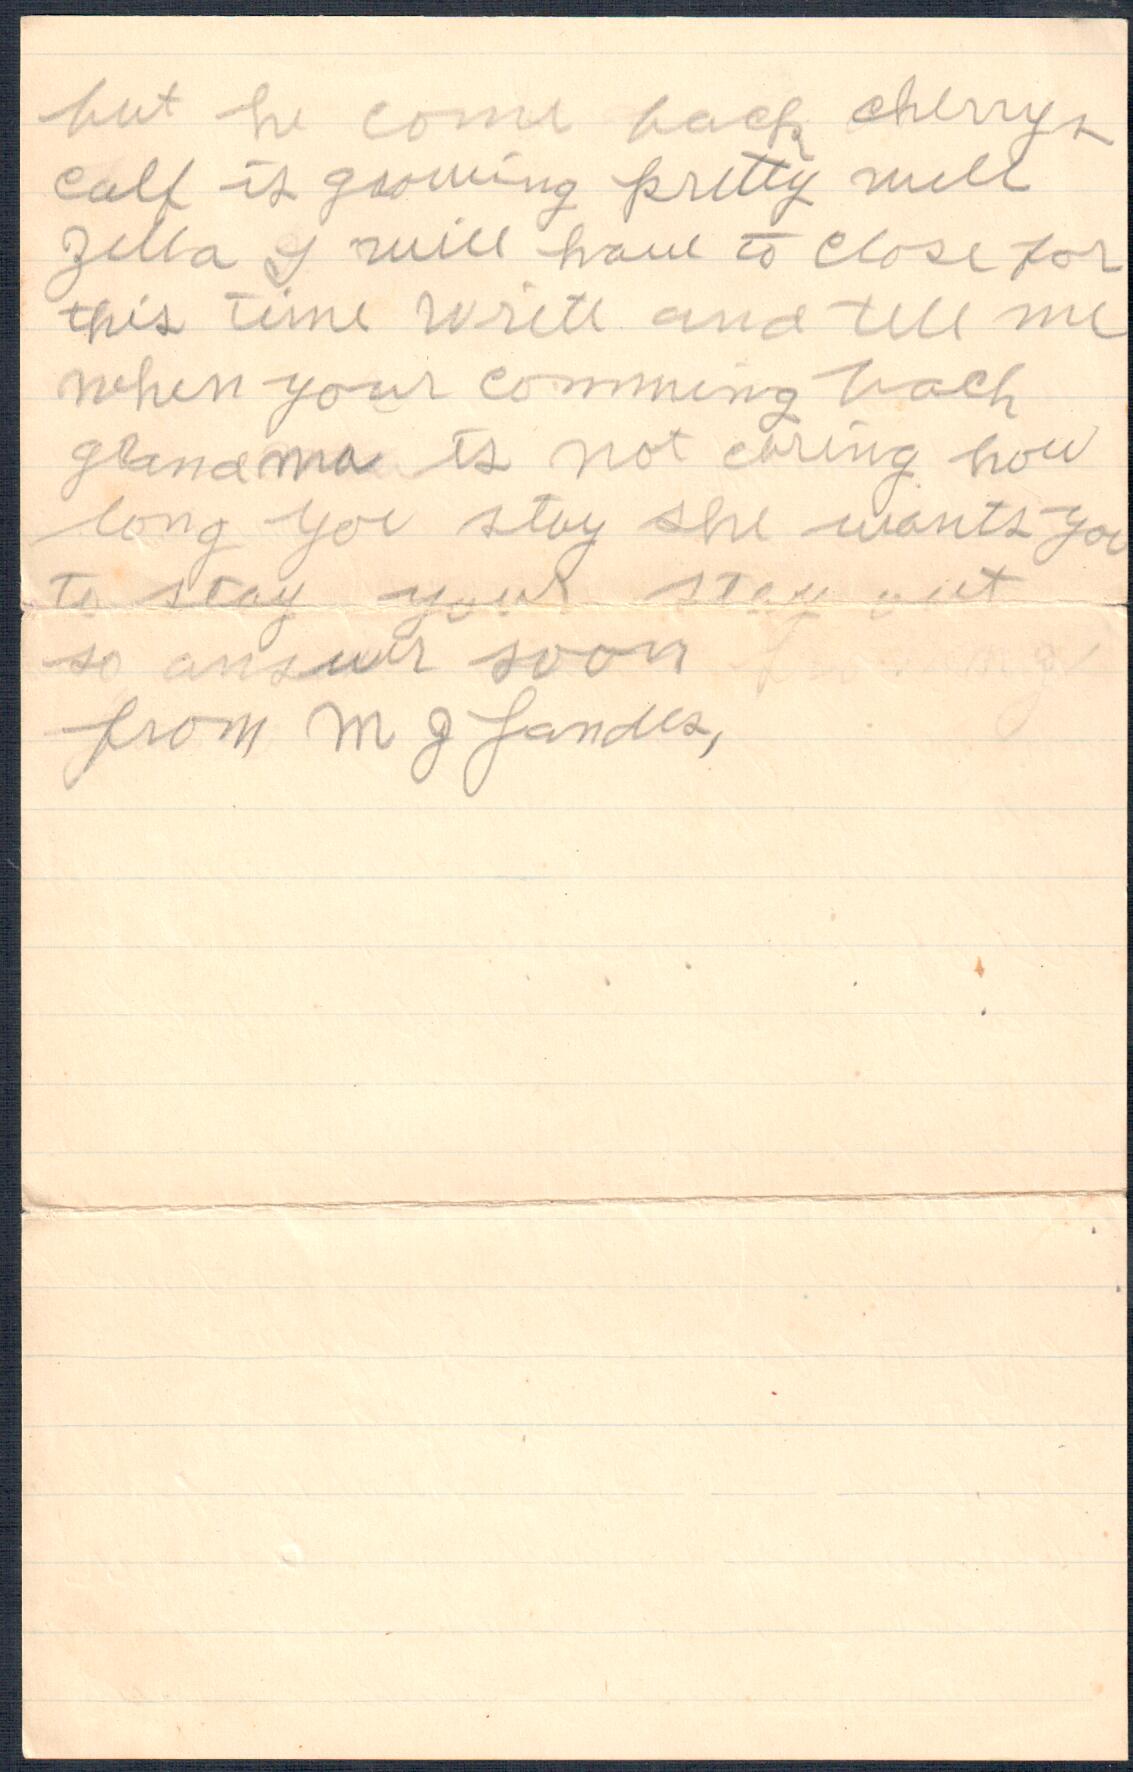 but he come back cherrys
calf is growing pretty well
Zella I will have to close for
this time Write and tell me
when your comming back
grandma is not caring how
long you stay she wants you
to stay your stay out
so answer soon
from M J Landes,